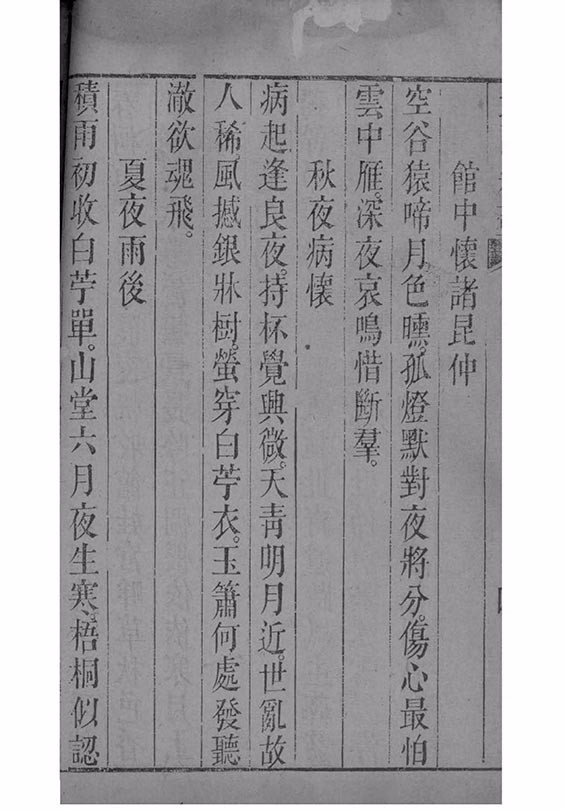 館中懷諸昆仲
空谷猿啼月色曛。孤燈默對夜將分。傷心最怕
雲中雁。深夜哀鳴惜斷羣。
秋夜病懷
病起逢良夜。持杯覺興微。天青明月近。世亂故
人稀。風撼銀牀樹。螢穿白苧衣。玉簫何處發聽
澈欲魂飛。
夏夜雨後
積雨初收白苧單。山堂六月夜生寒。梧桐似認